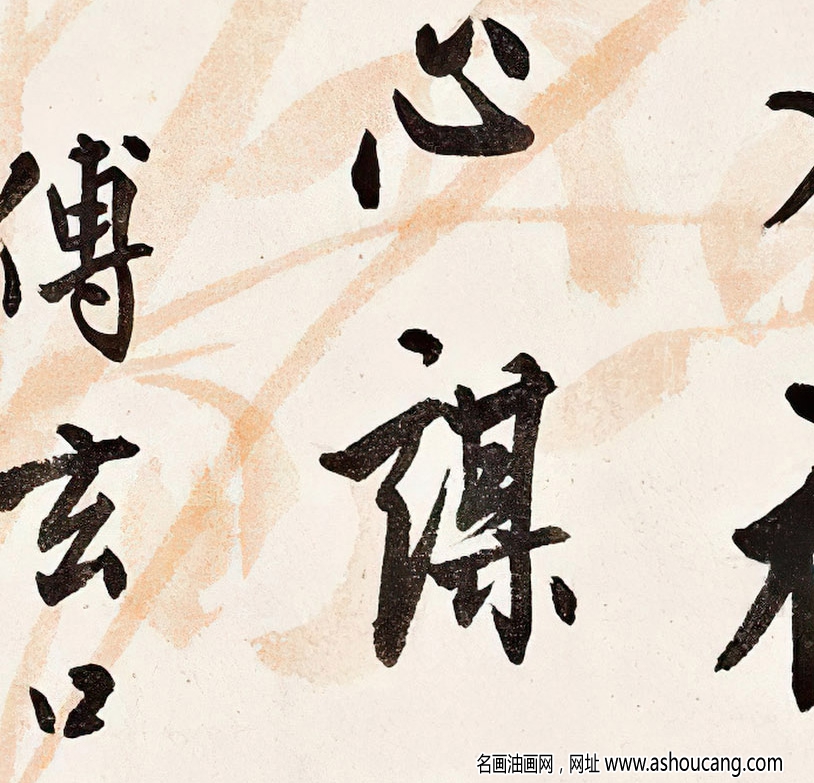 心谋
傅玄口
名画油画网，网址 www.ashoucang.com